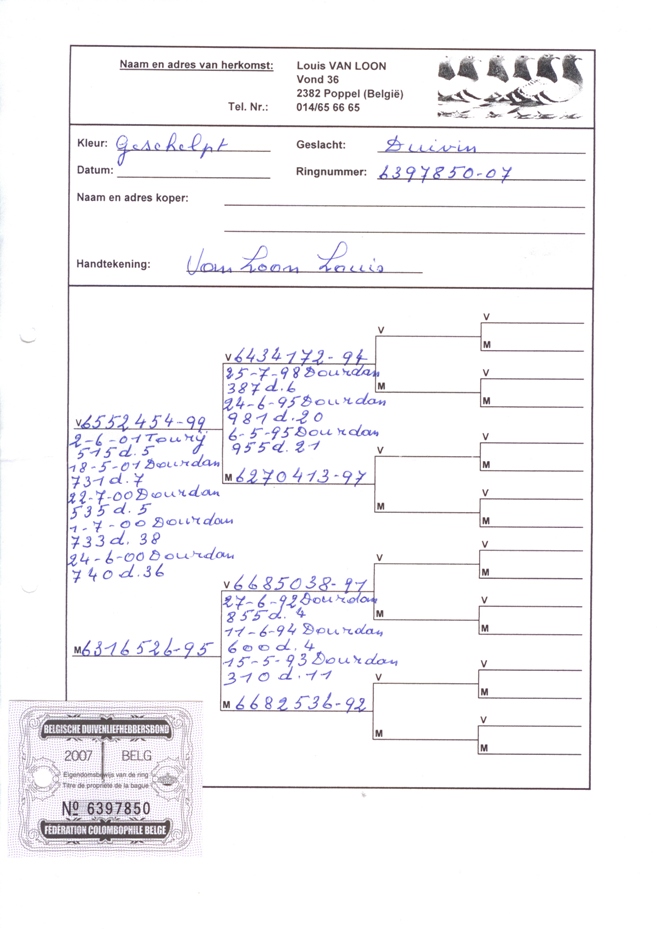 Naam en adres van herkomst: Louis VAN LOON
Vond 36
2382 Poppel (België)
Tel. Nr.: 014/65 66 65
Kleur: Geschelpt Geslacht: Duivin
Datum: Ringnummer: 6397850-07
Naam en adres koper:
Handtekening: Van Loon Louis
V
M
V
M
V
M
V
M
V
M
V
M
V
M
V
M
V
M
V
M
V
M
V
M
V 6434172-94
25-7-98 Dourdan
387 d. 6
24-6-95 Dourdan
981 d. 20
6-5-95 Dourdan
955 d. 21
M 6270413-97
V 6552454-99
2-6-01 Toury
515 d. 5
18-5-01 Dourdan
731 d. 7
22-7-00 Dourdan
535 d. 5
1-7-00 Dourdan
733 d. 38
24-6-00 Dourdan
740 d. 36
V 6685038-91
27-6-92 Dourdan
855 d. 4
11-6-94 Dourdan
600 d. 4
15-5-93 Dourdan
310 d. 11
M 6682536-92
M 6316526-95
BELGISCHE DUIVENLIEFHEBBERSBOND
2007 BELG
Eigendomsbewijs van de ring
Titre de propriété de la bague
Nº 6397850
FÉDÉRATION COLOMBOPHILE BELGE